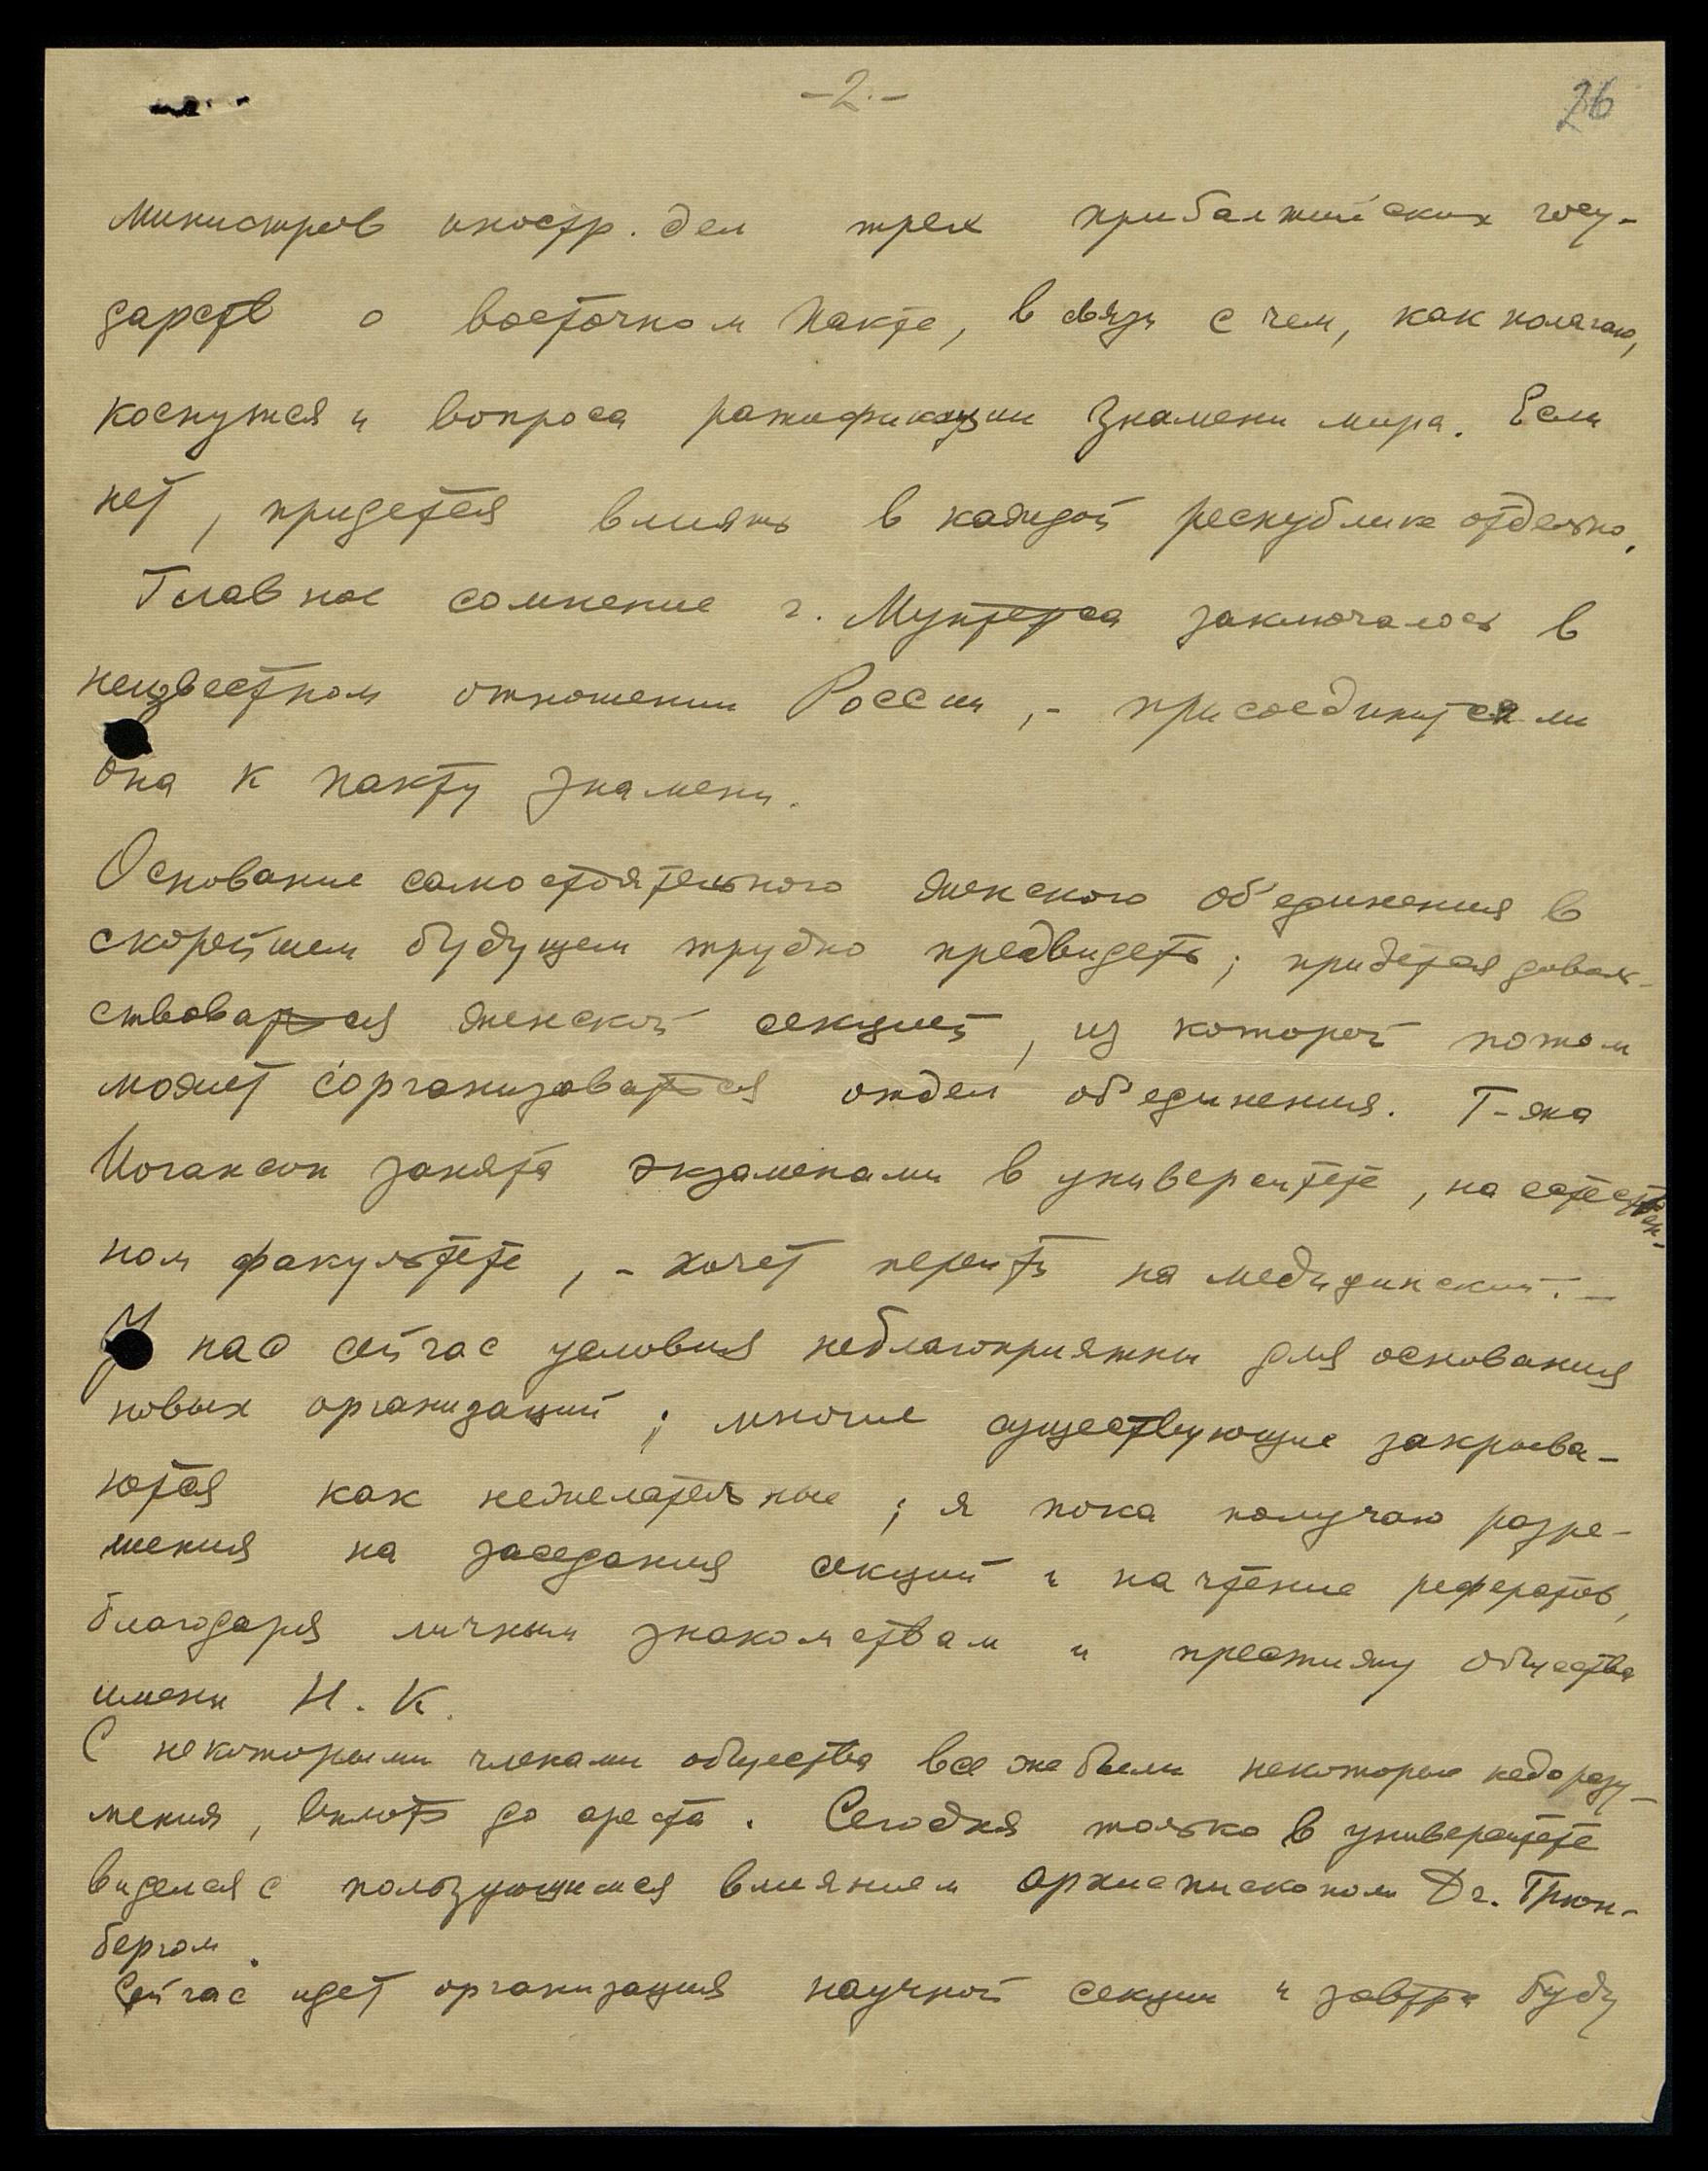 -2.-
26
министров иностр. дел трех прибалтийских госу-
дарств о восточном пакте, в связи с чем, как полагаю,
коснутся и вопроса ратификации Знамени мира. Если
нет, придется влиять в каждой республике отдельно.
Главное сомнение г. Мунтерса заключалось в
неизвестном отношении России, - присоединится ли
она к пакту знамени.
Основание самостоятельного женского об'единения в
скорейшем будущем трудно предвидеть; придется доволь-
ствоваться женской секцией, из которой потом
может сорганизоваться отдел об'единения. Г-жа
Иогансон занята экзаменами в университете, на естествен-
ном факультете, - хочет перейти на медицинский. -
У нас сейчас условия неблагоприятны для основания
новых организаций; многие существующие закрыва-
ются как нежелательные; я пока получаю разре-
шения на заседания секций и на чтение рефератов,
благодаря личным знакомствам и престижу общества
имени Н. К.
С некоторыми членами общества все же были некоторые недоразу-
мения, вплоть до ареста. Сегодня только в университете
виделся с пользующимся влиянием архиепископом Dr. Грюн-
бергом.
Сейчас идет организация научной секции и завтра буду